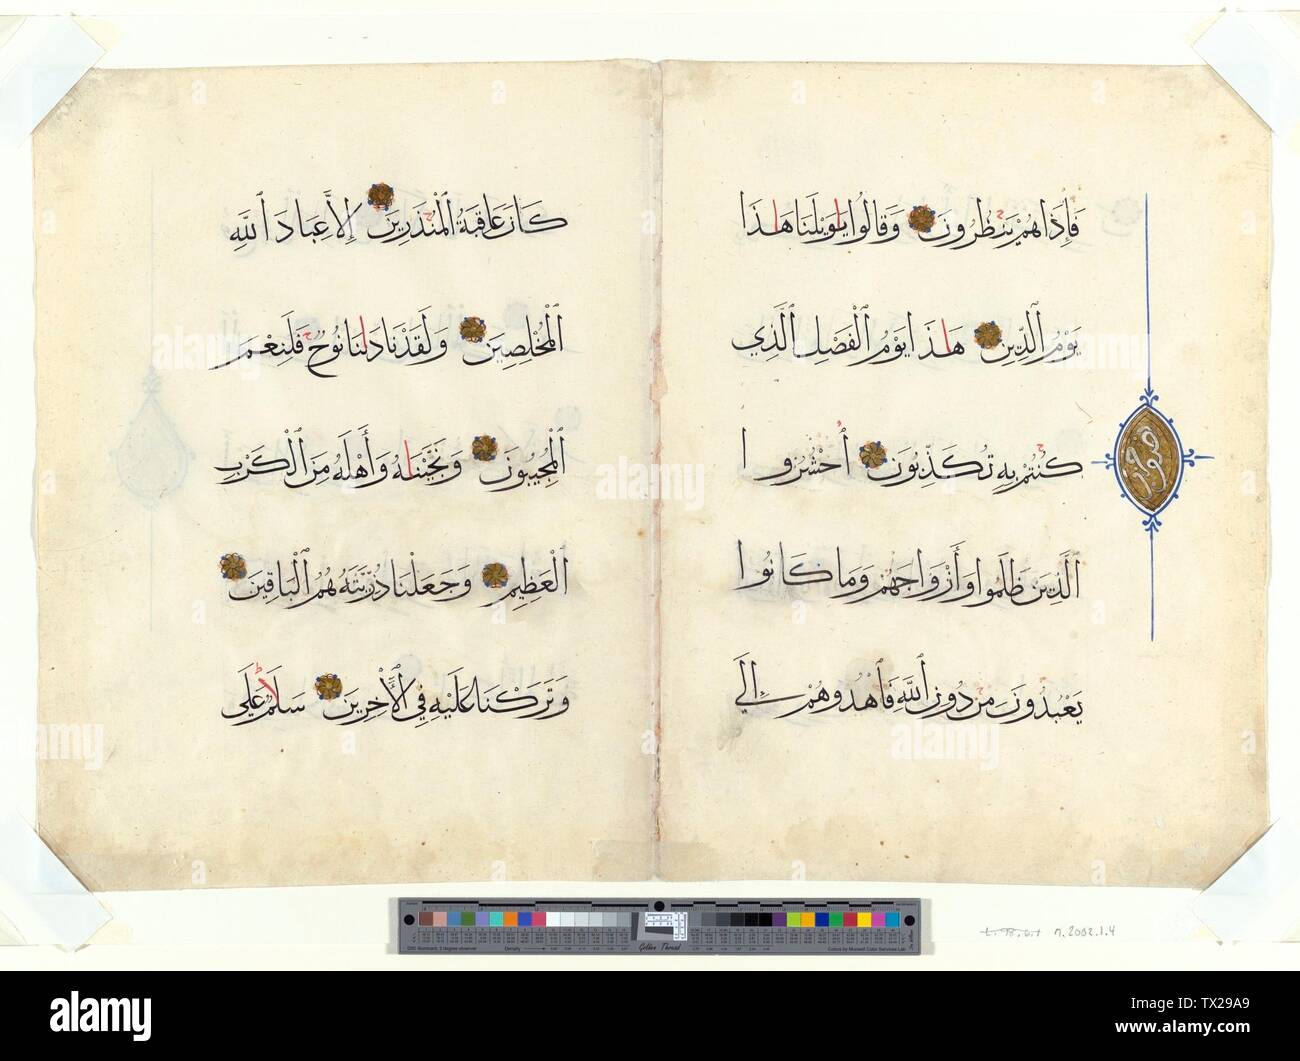 فَإِذَا هُمْ يَنْظُرُونَ وَقَالُوا يَا وَيْلَنَا هَاذَا
يَوْمُ الدِّينِ هَاذَا يَوْمُ الْفَصْلِ الَّذِي
كُنْتُمْ بِهِ تُكَذِّبُونَ اُحْشُرُوا
الَّذِينَ ظَلَمُوا وَأَزْوَاجَهُمْ وَمَا كَانُوا
يَعْبُدُونَ مِنْ دُونِ اللَّهِ فَاهْدُوهُمْ إِلَى
كَانَ عَاقِبَةُ الْمُنْذَرِينَ إِلَّا عِبَادَ اللَّهِ
الْمُخْلَصِينَ وَلَقَدْ نَادَانَا نُوحٌ فَلَنِعْمَ
الْمُجِيبُونَ وَنَجَّيْنَاهُ وَأَهْلَهُ مِنَ الْكَرْبِ
الْعَظِيمِ وَجَعَلْنَا ذُرِّيَّتَهُ هُمُ الْبَاقِينَ
وَتَرَكْنَا عَلَيْهِ فِي الْآخِرِينَ سَلَامٌ عَلَى
Golden Thread
n.2002.1.4
alamy
TX29A9